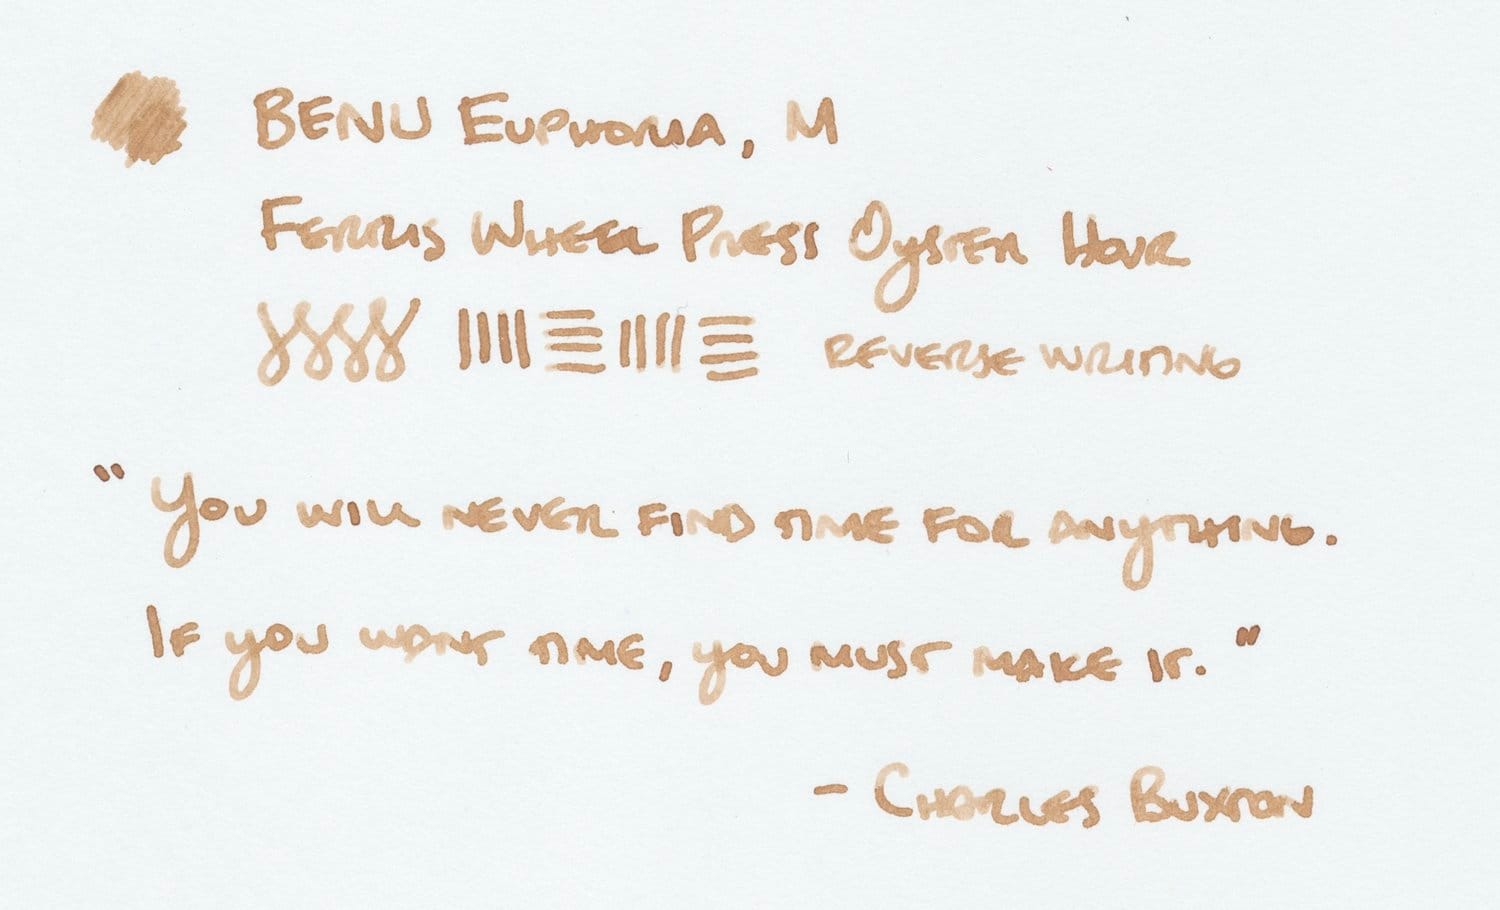 BENU Euphoria, M
Ferris Wheel Press Oyster Hour
Reverse Writing
"You will never find time for anything.
If you want time, you must make it."
- Charles Buxton